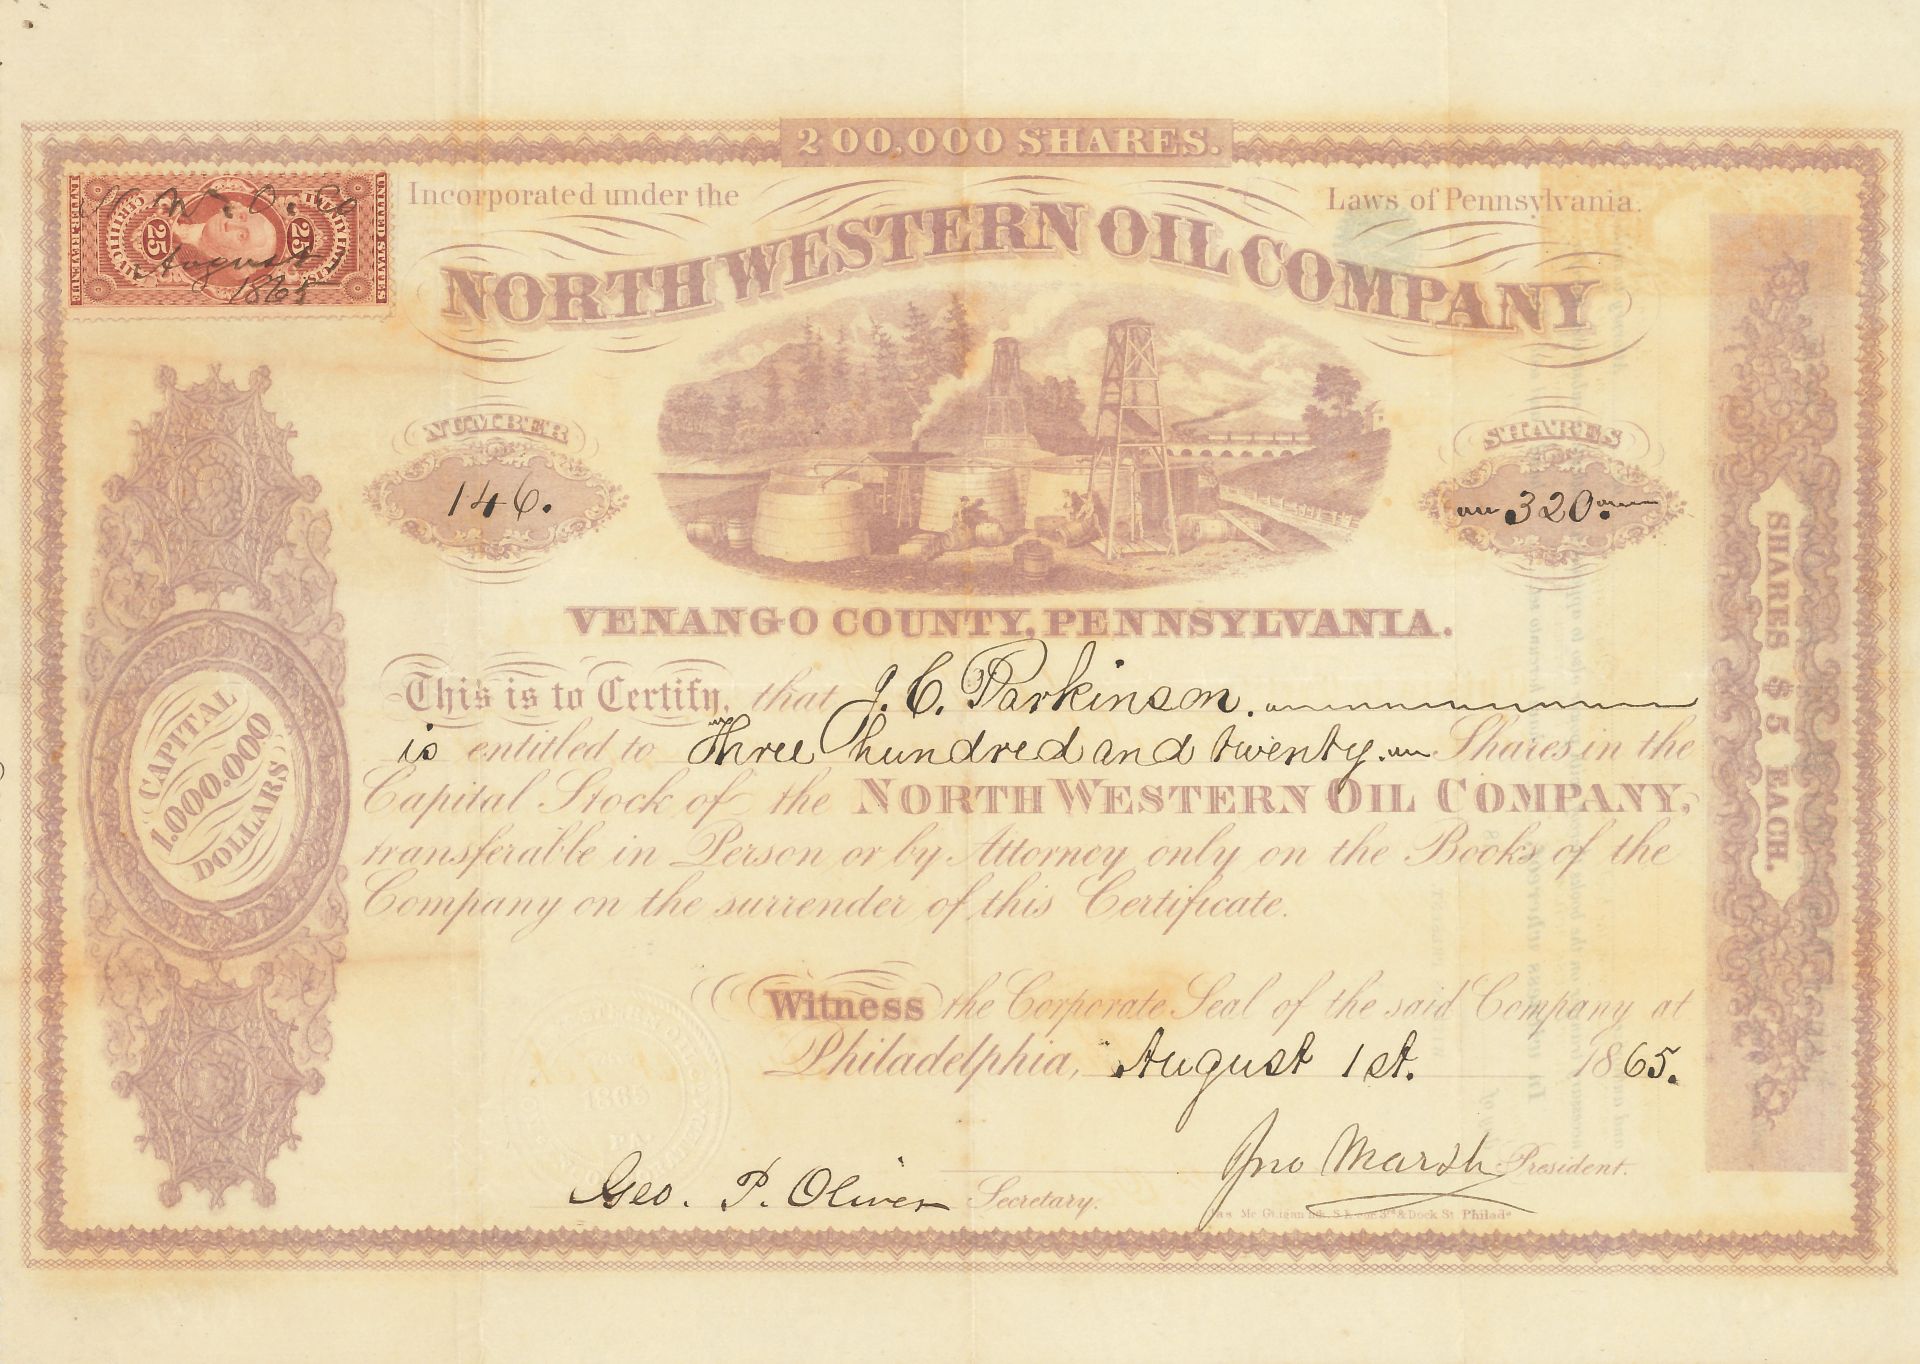 200,000 SHARES.
Incorporated under the Laws of Pennsylvania.
NORTH WESTERN OIL COMPANY
UNITED STATES
INTER. REVENUE
25 25
August
1865
NUMBER
146.
SHARES
320.
VENANGO COUNTY, PENNSYLVANIA.
This is to Certify, that J. C. Parkinson.
is entitled to Three hundred and twenty. Shares in the
Capital Stock of the NORTH WESTERN OIL COMPANY,
transferable in Person or by Attorney only on the Books of the
Company on the surrender of this Certificate.
CAPITAL
1.000.000
DOLLARS
SHARES $5 EACH.
Witness the Corporate Seal of the said Company at
Philadelphia, August 1st. 1865.
1865
PA.
Jno Marsh President.
Geo. P. Oliver Secretary.
3rd & Dock St Philada